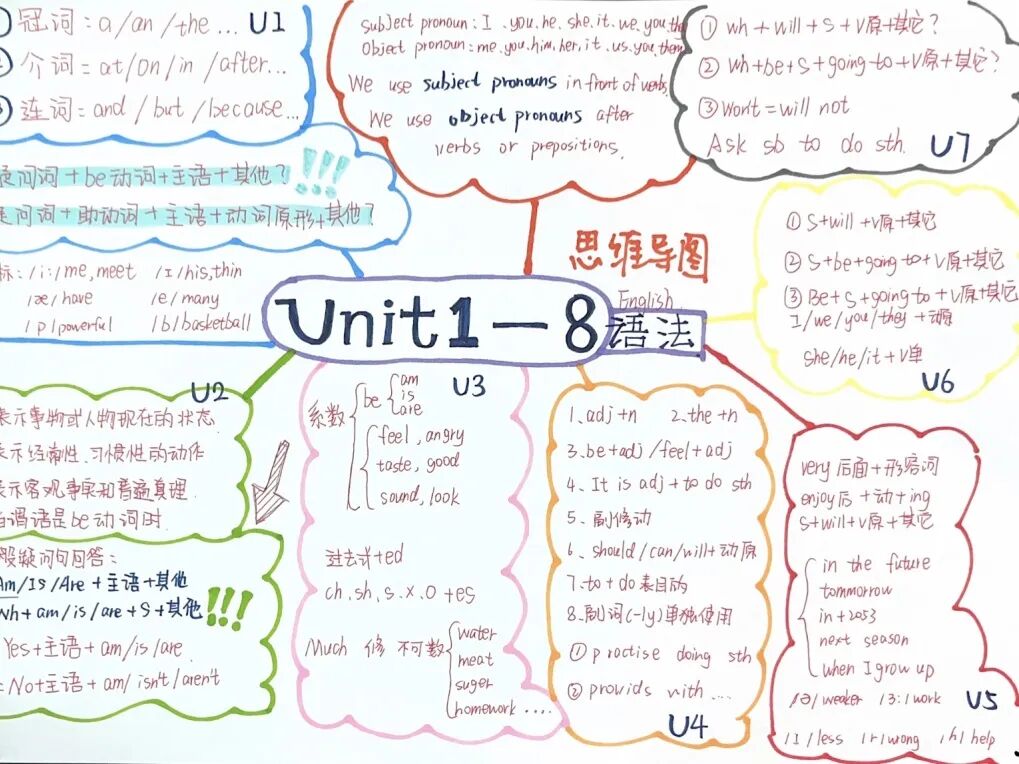 ① 冠词：a/an/the... U1
② 介词=at/on/in/after...
③ 连词=and/but/because...
疑问词+be动词+主语+其他？!!!
疑问词+助动词+主语+动词原形+其他？
标：/i:/me,meet /ɪ/his,thin
/æ/have /e/many
/p/powerful /b/basketball
subject pronoun: I.you.he.she.it.we.you.the
Object pronoun:me.you.him.her.it.us.you.them
We use subject pronouns in front of verbs.
We use object pronouns after
verbs or prepositions.
① wh+will+S+V原+其它？
② wh+be+S+going to+V原+其它？
③ won't=will not
Ask sb to do sth. U7
思维导图
English
Unit1—8 语法
① S+will+V原+其它
② S+be+going to+V原+其它
③ Be+S+going to+V原+其它
I/we/you/they+动原
she/he/it+V单
U6
U2
表示事物或人物现在的状态
表示经常性、习惯性的动作
表示客观事实和普遍真理.
当谓语是be动词时
般疑问句回答：
Am/Is/Are+主语+其他
Wh+am/is/are+S+其他 !!!
Yes+主语+am/is/are
No+主语+am/isn't/aren't
U3
系数 be am
is
are
feel,angry
taste,good
sound,look
过去式+ed
ch.sh.s.x.o+es
Much 修 不可数 water
meat
suger
homework....
1.adj+n 2.the+n
3.be+adj/feel+adj
4. It is adj+to do sth
5. 副修动
6. should/can/will+动原
7.to+do表目的
8.副词(-ly)单独使用
① practise doing sth
② provids with ....
U4
very后面+形容词
enjoy后+动+ing
S+will+V原+其它
in the future
tommorrow
in+2053
next season
when I grow up
/ə/weaker /ɜ:/work U5
/l/less /r/wrong /h/help